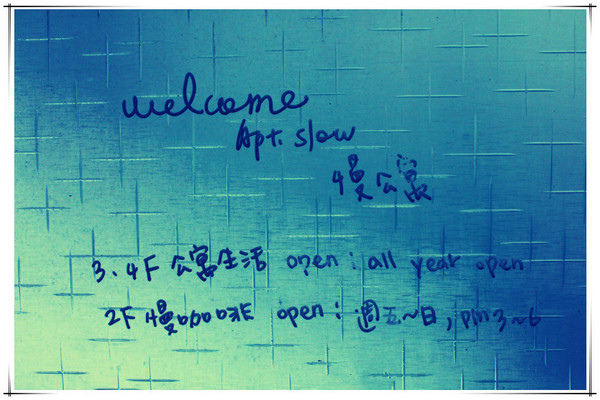 welcome
Apt. slow
慢公寓
3、4F 公寓生活 open : all year open
2F 慢咖啡 open : 週五~日, pm 3~6